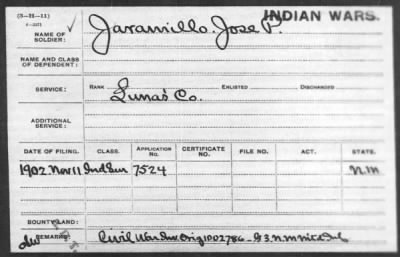 (3-21-11)
6-2271
INDIAN WARS.
NAME OF SOLDIER: Jaramillo Jose P.
NAME AND CLASS OF DEPENDENT:
SERVICE: RANK ENLISTED DISCHARGED
Luna's Co.
ADDITIONAL SERVICE:
DATE OF FILING. CLASS. APPLICATION No. CERTIFICATE NO. FILE NO. ACT. STATE.
1902 Nov 11 Ind Sur 7524 N.M
BOUNTY LAND:
REMARKS: Civil War Inv. Orig 1002786 - G 3 N.M. Inf